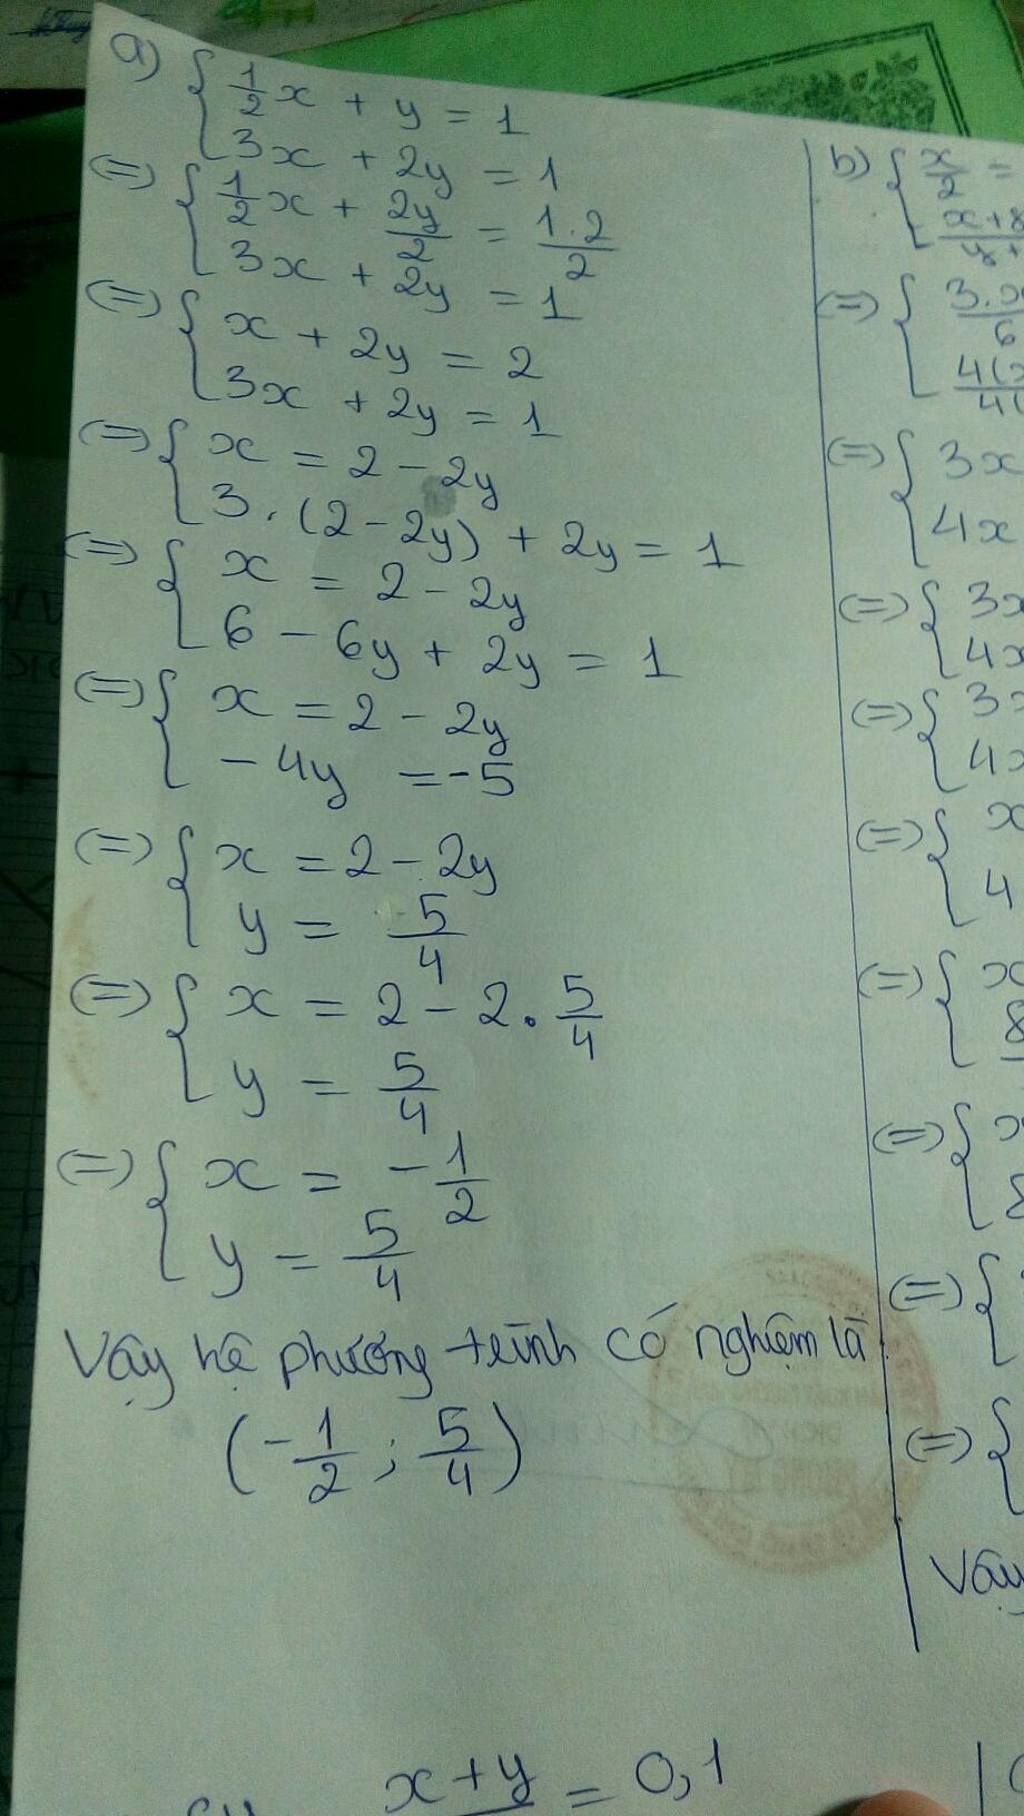 a) { 1/2 x + y = 1
3x + 2y = 1
(=) { 1/2 x + 2y/2 = 1.2/2
3x + 2y = 1
(=) { x + 2y = 2
3x + 2y = 1
(=) { x = 2 - 2y
3. (2 - 2y) + 2y = 1
(=) { x = 2 - 2y
6 - 6y + 2y = 1
(=) { x = 2 - 2y
- 4y = -5
(=) { x = 2 - 2y
y = 5/4
(=) { x = 2 - 2 . 5/4
y = 5/4
(=) { x = - 1/2
y = 5/4
Vậy hệ phương trình có nghiệm là
(- 1/2 ; 5/4)
x + y = 0,1
b) { x/2 =
(=) {
(=) { 3x
4x
(=) { 3x
4x
(=) {
(=) { x
4
(=) { x
8
(=) {
(=) {
(=) {
Vậy